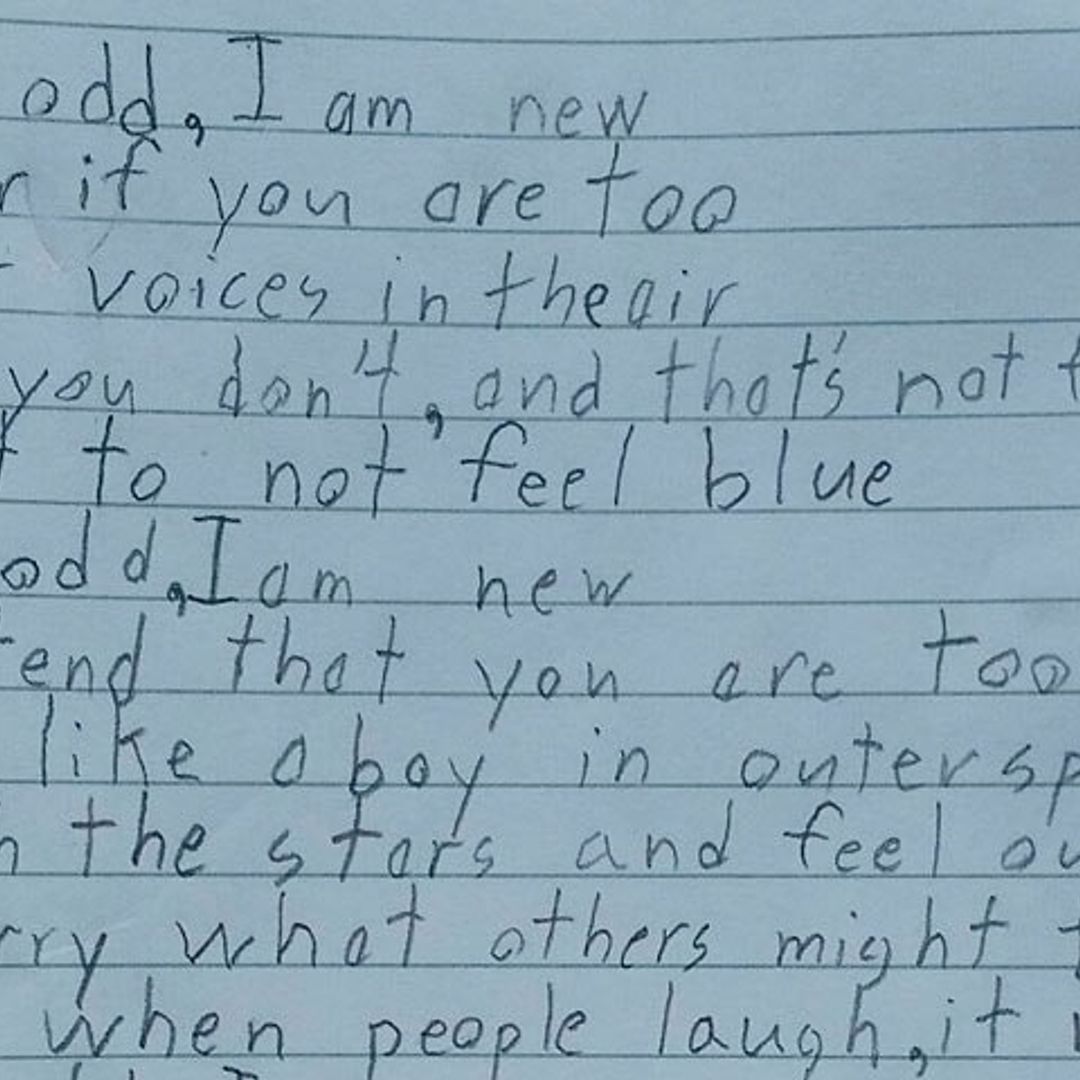 odd, I am new
if you are too
voices in theair
you don't, and that's not
to not feel blue
odd, I am new
that you are too
like a boy in outer
the stars and feel
what others might
when people laugh, it